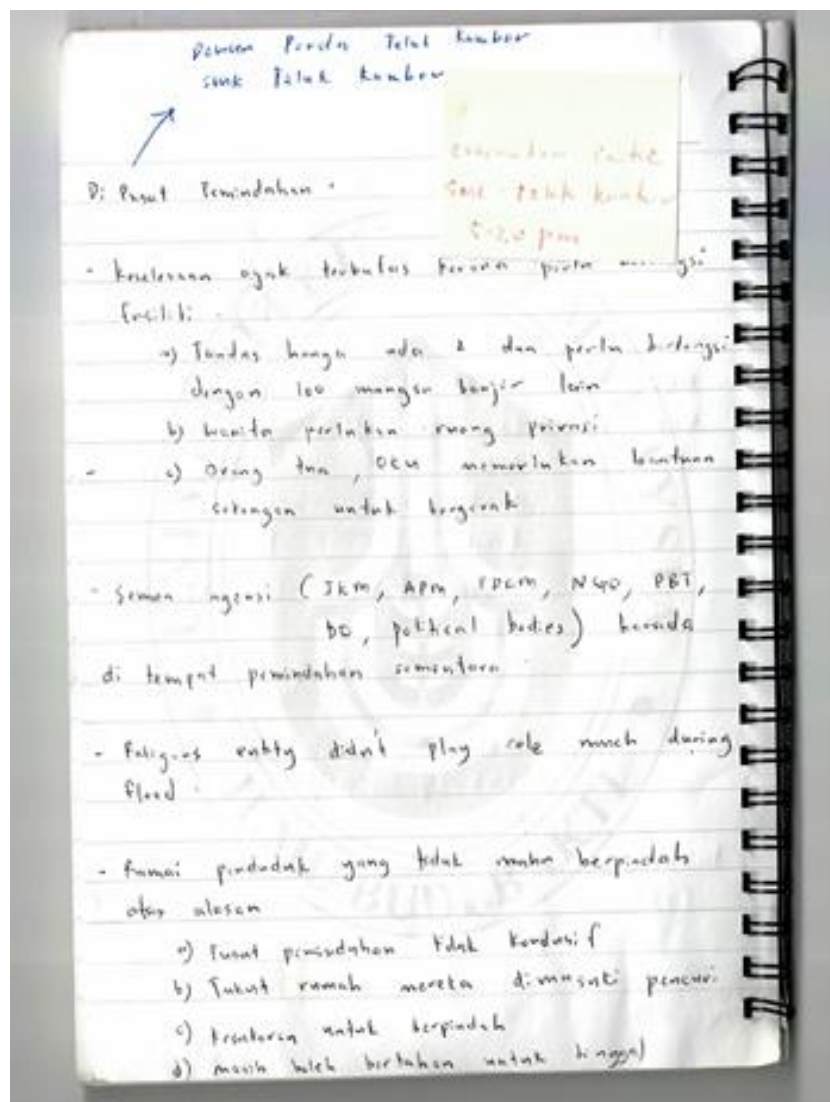 Dewan Perda Telok Kumbar
SMK Teluk Kumbar
SMK Teluk Kumbar
5.20 pm
Di Pusat Pemindahan.
- Keselesaan agak terbatas kerana perlu
fasiliti.
a) Tandas hanya ada 2 dan perlu berkongsi
dengan 100 mangsa banjir lain
b) Wanita perlukan ruang privasi
- c) Orang tua, OKU memerlukan bantuan
sokongan untuk bergerak
- Semua agensi (JKM, APM, PDRM, NGO, PBT,
DO, political bodies) berada
di tempat pemindahan sementara.
- Religious entity didn't play role much during
flood.
- Ramai penduduk yang tidak mahu berpindah
atas alasan
a) Pusat pemindahan tidak kondusif
b) Takut rumah mereka dimasuki pencuri.
c) untuk berpindah
d) masih boleh bertahan untuk tinggal